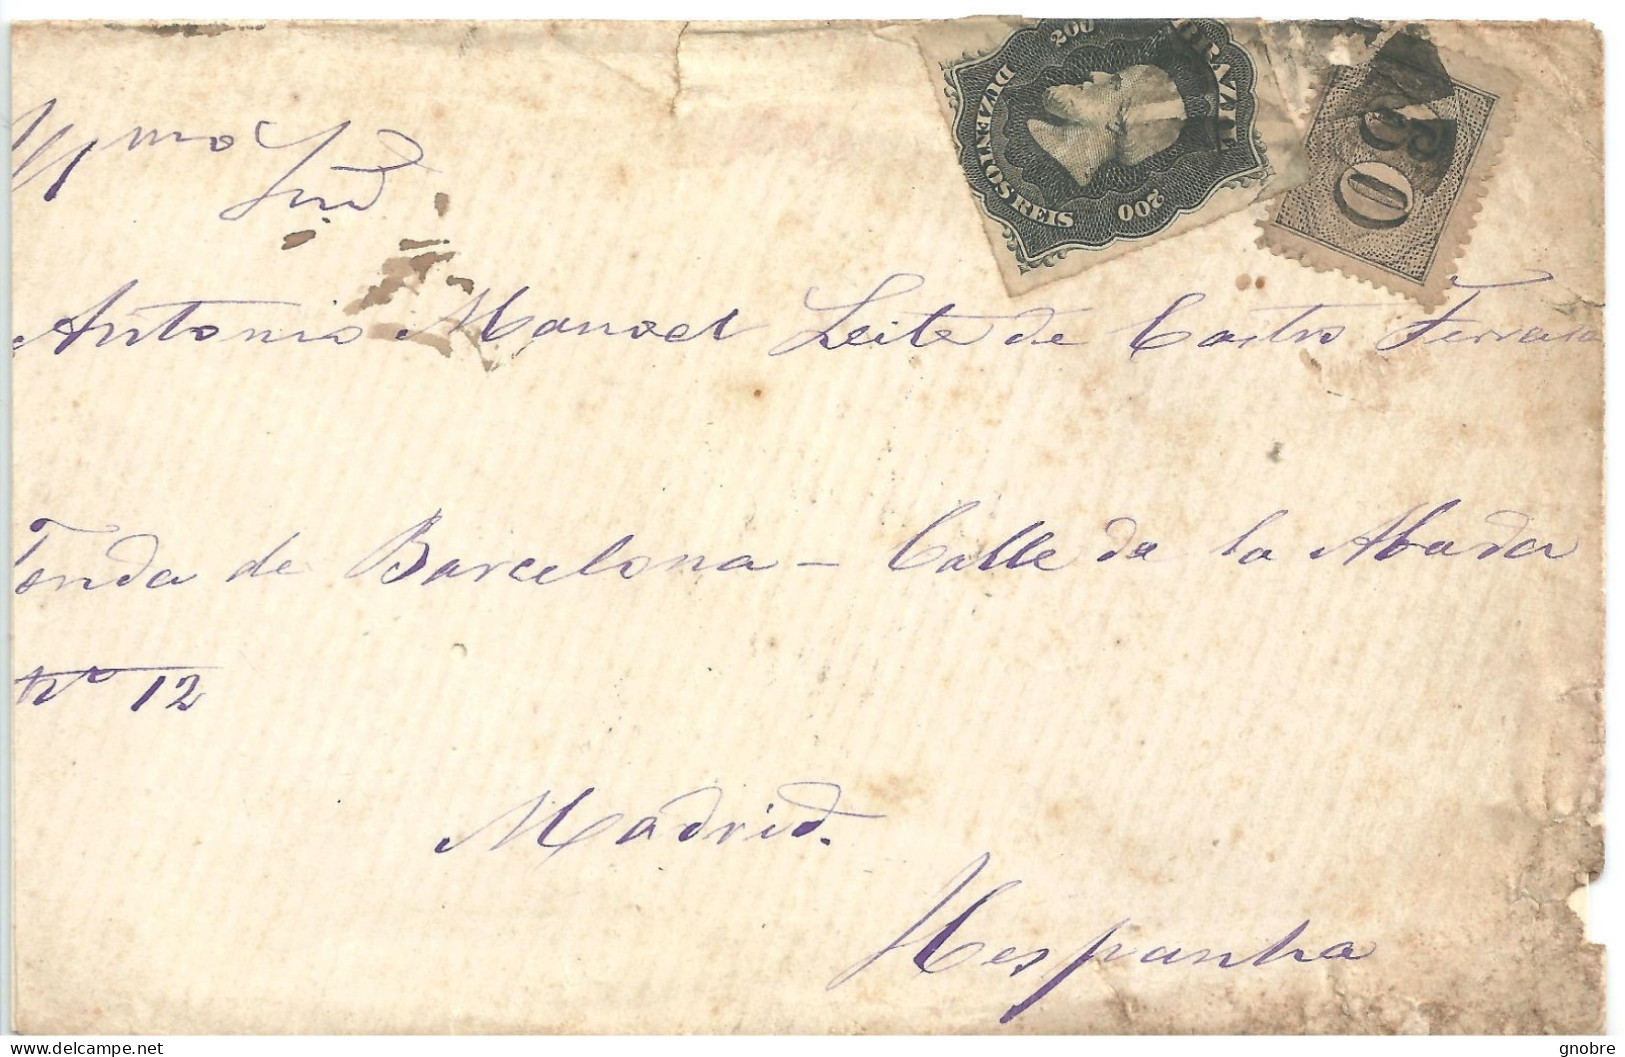 Illmo Snr
Antonio Manoel Leite de Castro Ferrara
Fonda de Barcelona - Calle de la Abada
No 12
Madrid.
Hespanha
BRAZIL
200
200
DUZENTOS REIS
delcampe.net
gnobre